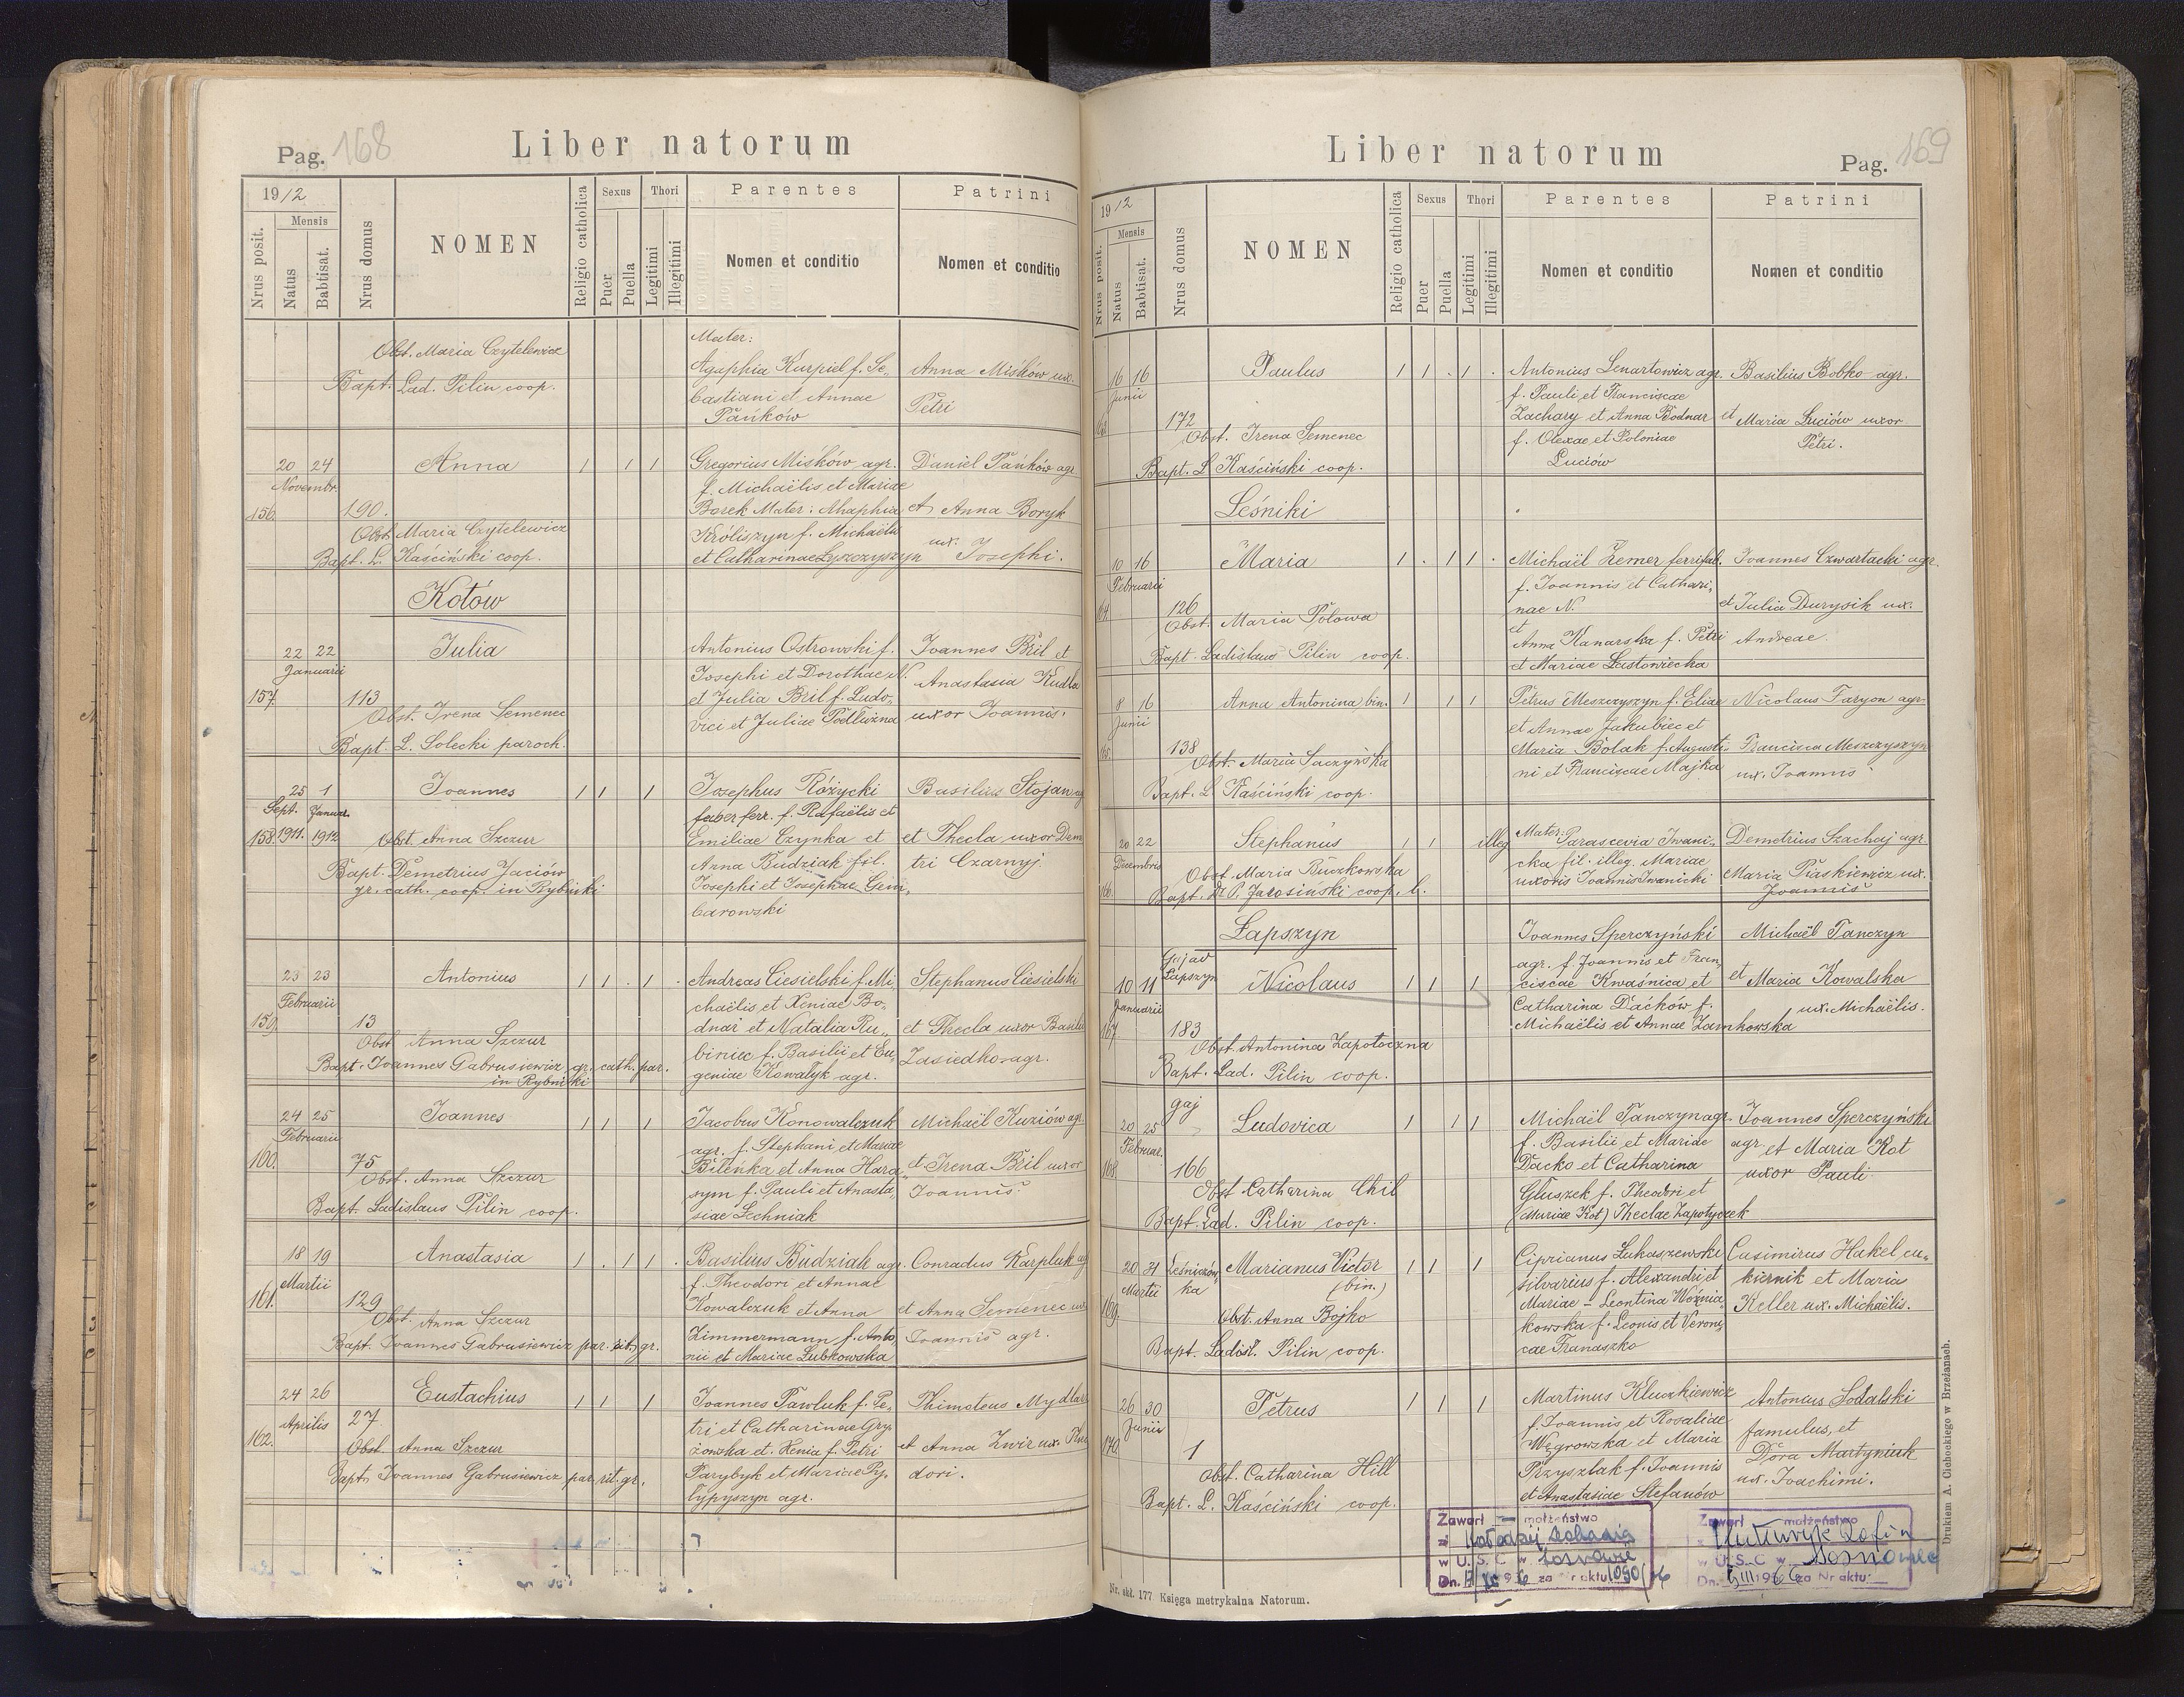 Pag. 168
Liber natorum
1912
Mensis
Nrus posit.
Natus
Babtisat.
Nrus domus
NOMEN
Religio catholica
Sexus
Puer
Puella
Thori
Legitimi
Illegitimi
Parentes
Nomen et conditio
Patrini
Nomen et conditio
Obst. Maria Czytelewicz
Bapt. Lad. Pilin coop.
Mater:
Agaphia Kurpiel f. Se-
bastiani et Annae
Pańków
Anna Misków ux.
Petri
20 24
Novembr.
156.
190.
Anna
Obst. Maria Czytelewicz
Bapt. L. Kaściński coop.
1 1 1
Gregorius Misków agr.
f. Michaëlis et Mariae
Borek Mater: Ahaphia
Króliszyn f. Michaëlis
et Catharinae Łyszczyszyn
Daniel Pańków agr
et Anna Boryk
ux. Josephi.
Kotów
22 22
Januarii
157.
113
Julia
Obst. Irena Semenec
Bapt. L. Solecki paroch.
Antonius Ostrowski f.
Josephi et Dorothae N.
et Julia Bril f. Ludo-
vici et Juliae Podłużna
Joannes Bril et
Anastasia Kudła
uxor Joannis.
25 1
Sept. Januar.
158. 1911. 1912
Joannes
Obst. Anna Szczur
Bapt. Demetrius Jaciów
gr. cath. coop. in Rybniki
1 1 1
Josephus Różycki
faber ferr. f. Rafaëlis et
Emiliae Czynka et
Anna Budziak fil.
Josephi et Josephae Gem-
barowski
Basilius Stojan
et Thecla uxor Deme
tri Czarnyj
23 23
Februarii
159.
13
Antonius
Obst Anna Szczur
Bapt. Joannes Gabrusiewicz gr. cath. par.
in Rybniki
1 1 . 1 .
Andreas Ciesielski f. Mi-
chaëlis et Xeniae Bo-
dnar et Natalia Ru-
biniec f. Basilii et Eu-
geniae Kowalyk agr.
Stephanus Ciesielski
et Thecla uxor Basilii
Zasiedko agr.
24 25
Februarii
160.
75
Joannes
Obst. Anna Szczur
Bapt. Ladislaus Pilin coop.
1 1 1
Jacobus Konowalczuk
agr. f. Stephani et Mariae
Bileńka et Anna Hara-
sym f. Pauli et Anasta-
siae Lechniak
Michaël Kuziów agr.
et Irena Bril uxor
Joannis.
18 19
Martii
161.
129
Anastasia
Obst. Anna Szczur
Bapt. Joannes Gabrusiewicz par. rit. gr.
1 . 1 1 .
Basilius Budziak agr.
f. Theodori et Annae
Kowalczuk et Anna
Zimmermann f. Anto-
nii et Mariae Lubkowska
Conradus Karpluk ag
et Anna Semenec ux
Joannis agr.
24 26
Aprilis
162.
27
Eustachius
Obst. Anna Szczur
Bapt. Joannes Gabrusiewicz par. rit. gr.
1 1 1
Joannes Pawluk f. Pe-
tri et Catharinae Gry-
zowska et Xenia f. Petri
Parybyk et Mariae Py-
lypyszyn agr.
Thimoteus Mydlar
et Anna Zwir ux. Theo
dori.
Liber natorum
Pag. 169
1912
Mensis
Nrus posit.
Natus
Babtisat.
Nrus domus
NOMEN
Religio catholica
Sexus
Puer
Puella
Thori
Legitimi
Illegitimi
Parentes
Nomen et conditio
Patrini
Nomen et conditio
16 16
Junii
163
172
Paulus
Obst. Irena Semenec
Bapt. L Kaściński coop.
1 1 . 1 .
Antonius Lenartowicz agr.
f. Pauli et Franciscae
Zachary et Anna Bodnar
f. Olexae et Poloniae
Luciów
Basilius Bobko agr.
et Maria Luciów uxor
Petri.
Leśniki
10 16
Februarii
164.
126
Maria
Obst. Maria Polowa
Bapt. Ladislaus Pilin coop.
1 . 1 1 .
Michaël Zemer ferrifab.
f. Joannis et Cathari-
nae N.
et
Anna Kanarska f. Petri
et Mariae Lastowiecka
Joannes Czwartacki agr.
et Julia Durysik ux.
Andreae.
8 16
Junii
165.
138
Anna Antonina bin.
Obst. Maria Saczyńska
Bapt. L Kaściński coop.
1 1 1
Petrus Meszczyszyn f. Eliae
et Annae Jakubiec et
Maria Bolak f. Augusti-
ni et Franciscae Majka
Nicolaus Faryon agr
Francisca Meszczyszyn
ux. Joannis
20 22
Decembris
166.
Stephanus
Obst. Maria Buczkowska
Bapt. Dr P. Jarosiński coop. b.
1 1 illeg
Mater: Parascevia Iwani-
cka fil. illeg. Mariae
uxoris Joannis Iwanicki
Demetrius Szachaj agr.
Maria Piaskiewicz ux.
Joannis
Łapszyn
Gaj ad
Łapszyn
10 11
Januarii
167
183
Nicolaus
Obst. Antonina Zapotoczna
Bapt. Lad. Pilin coop.
1 1 1
Joannes Sperczyński
agr. f. Joannis et Fran-
ciscae Kwaśnica et
Catharina Daćków f.
Michaëlis et Annae Zamkowska
Michaël Tanczyn
et Maria Kowalska
ux. Michaëlis.
Gaj
20 25
Februar.
168.
166
Ludovica
Obst Catharina Chil
Bapt. Lad. Pilin coop.
1 1 1
Michaël Tanczyn agr.
f. Basilii et Mariae
Dacko et Catharina
Gluszek f. Theodri et
(Mariae Kot) Theclae Zapotyczek
Joannes Sperczyński
agr et Maria Kot
uxor Pauli
20 31
Martii
169.
Leśniczów-
ka
Marianus Victor
(bin.)
Obst. Anna Bojko
Bapt. Ladisl. Pilin coop.
1 1 1
Ciprianus Lukaszewski
silvarius f. Alexandri et
Mariae - Leontina Woźnia-
kowska f. Leonis et Veroni-
cae Franaszko
Casimirus Hakel cu-
kiernik et Maria
Keller ux. Michaëlis.
26 30
Junii
170.
1
Petrus
Obst. Catharina Hill
Bapt. L. Kaściński coop.
1 1 1
Martinus Kluczkiewicz
f. Joannis et Rosaliae
Węgrowska et Maria
Przyszlak f. Joannis
et Anastasiae Stefanów
Antonius Sodalski
famulus, et
Dora Martyniuk
ux. Joachimi.
Zawarł małżeństwo
z Kołodziej
w U. S. C. w
Dn. za Nr aktu 1050/
Zawarł małżeństwo
z Zofia
w U. S. C w Sosnowiec
Dn. za Nr aktu
Nr. skł. 177 Księga metrykalna Natorum.
Drukiem A. Cichockiego w Brzeżanach.